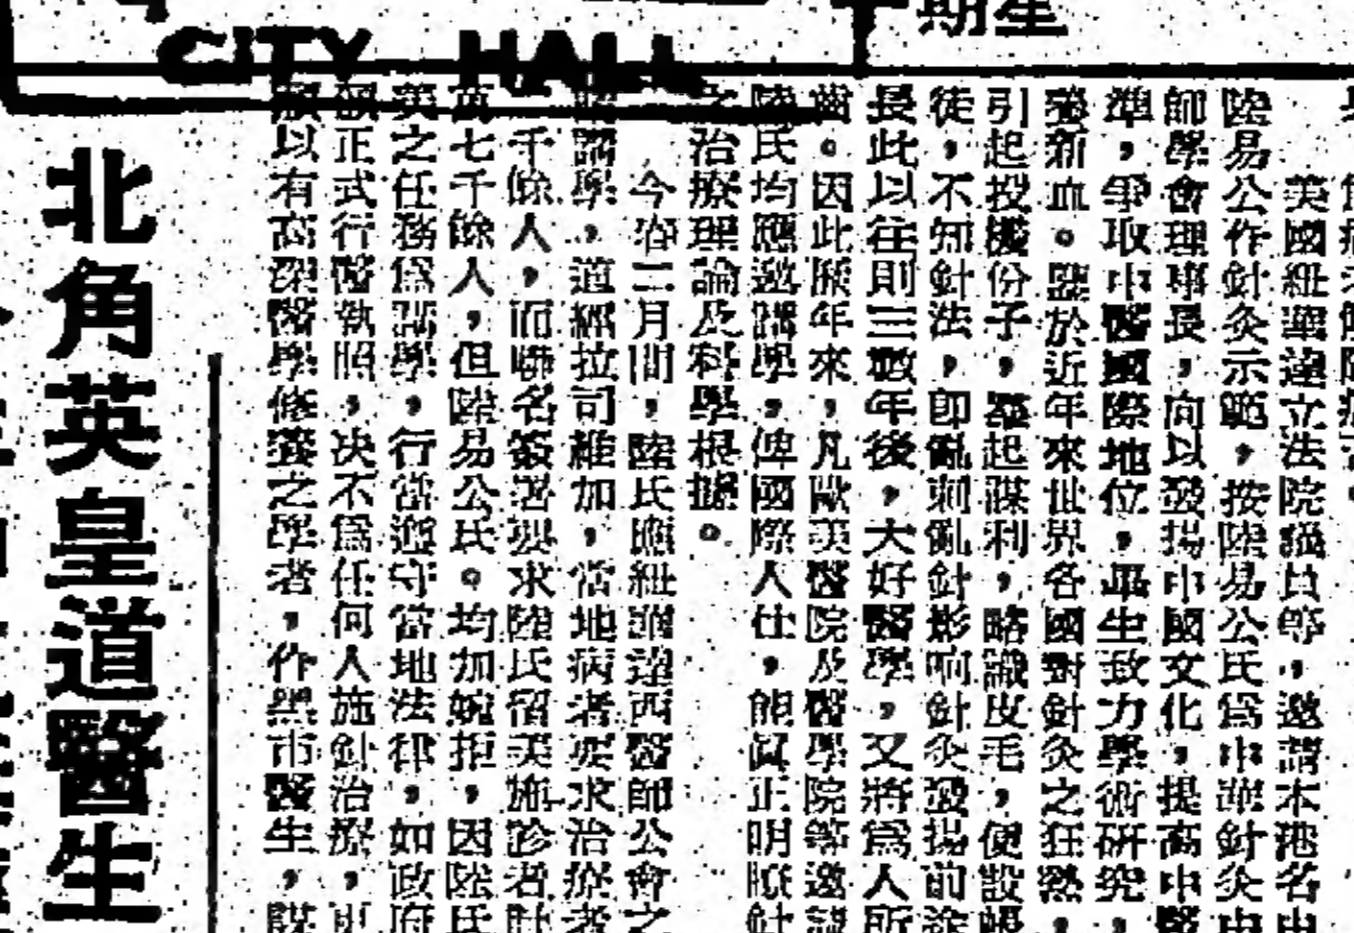 CITY HALL
星期
美國紐華達立法院議員等，邀請本港名中
陸易公作針灸示範，按陸易公氏為中華針灸中
師學會理事長，向以發揚中國文化，提高中醫
準，爭取中醫國際地位，畢生致力學術研究，
獲新血。鑒於近年來世界各國對針灸之狂熱，
引起投機份子，羣起謀利，略識皮毛，便設帳
徒，不知針法，即亂刺亂針影响針灸發揚前途
長此以往則三數年後，大好醫學，又將為人所
齒。因此歷年來，凡歐美醫院及醫學院等邀談
陸氏均應邀講學，俾國際人仕，能眞正明瞭針
之治療理論及科學根據。
今春二月間，陸氏應紐華達西醫師公會之
講學，道經拉司維加，當地病者要求治療者
一千餘人，而聯名簽署要求陸氏留美施診者計
萬七千餘人，但陸易公氏。均加婉拒，因陸氏
美之任務為講學，行當遵守當地法律，如政府
頒正式行醫執照，决不為任何人施針治療，則
以有高深醫學修養之學者，作黑市醫生，謀
北角英皇道醫生